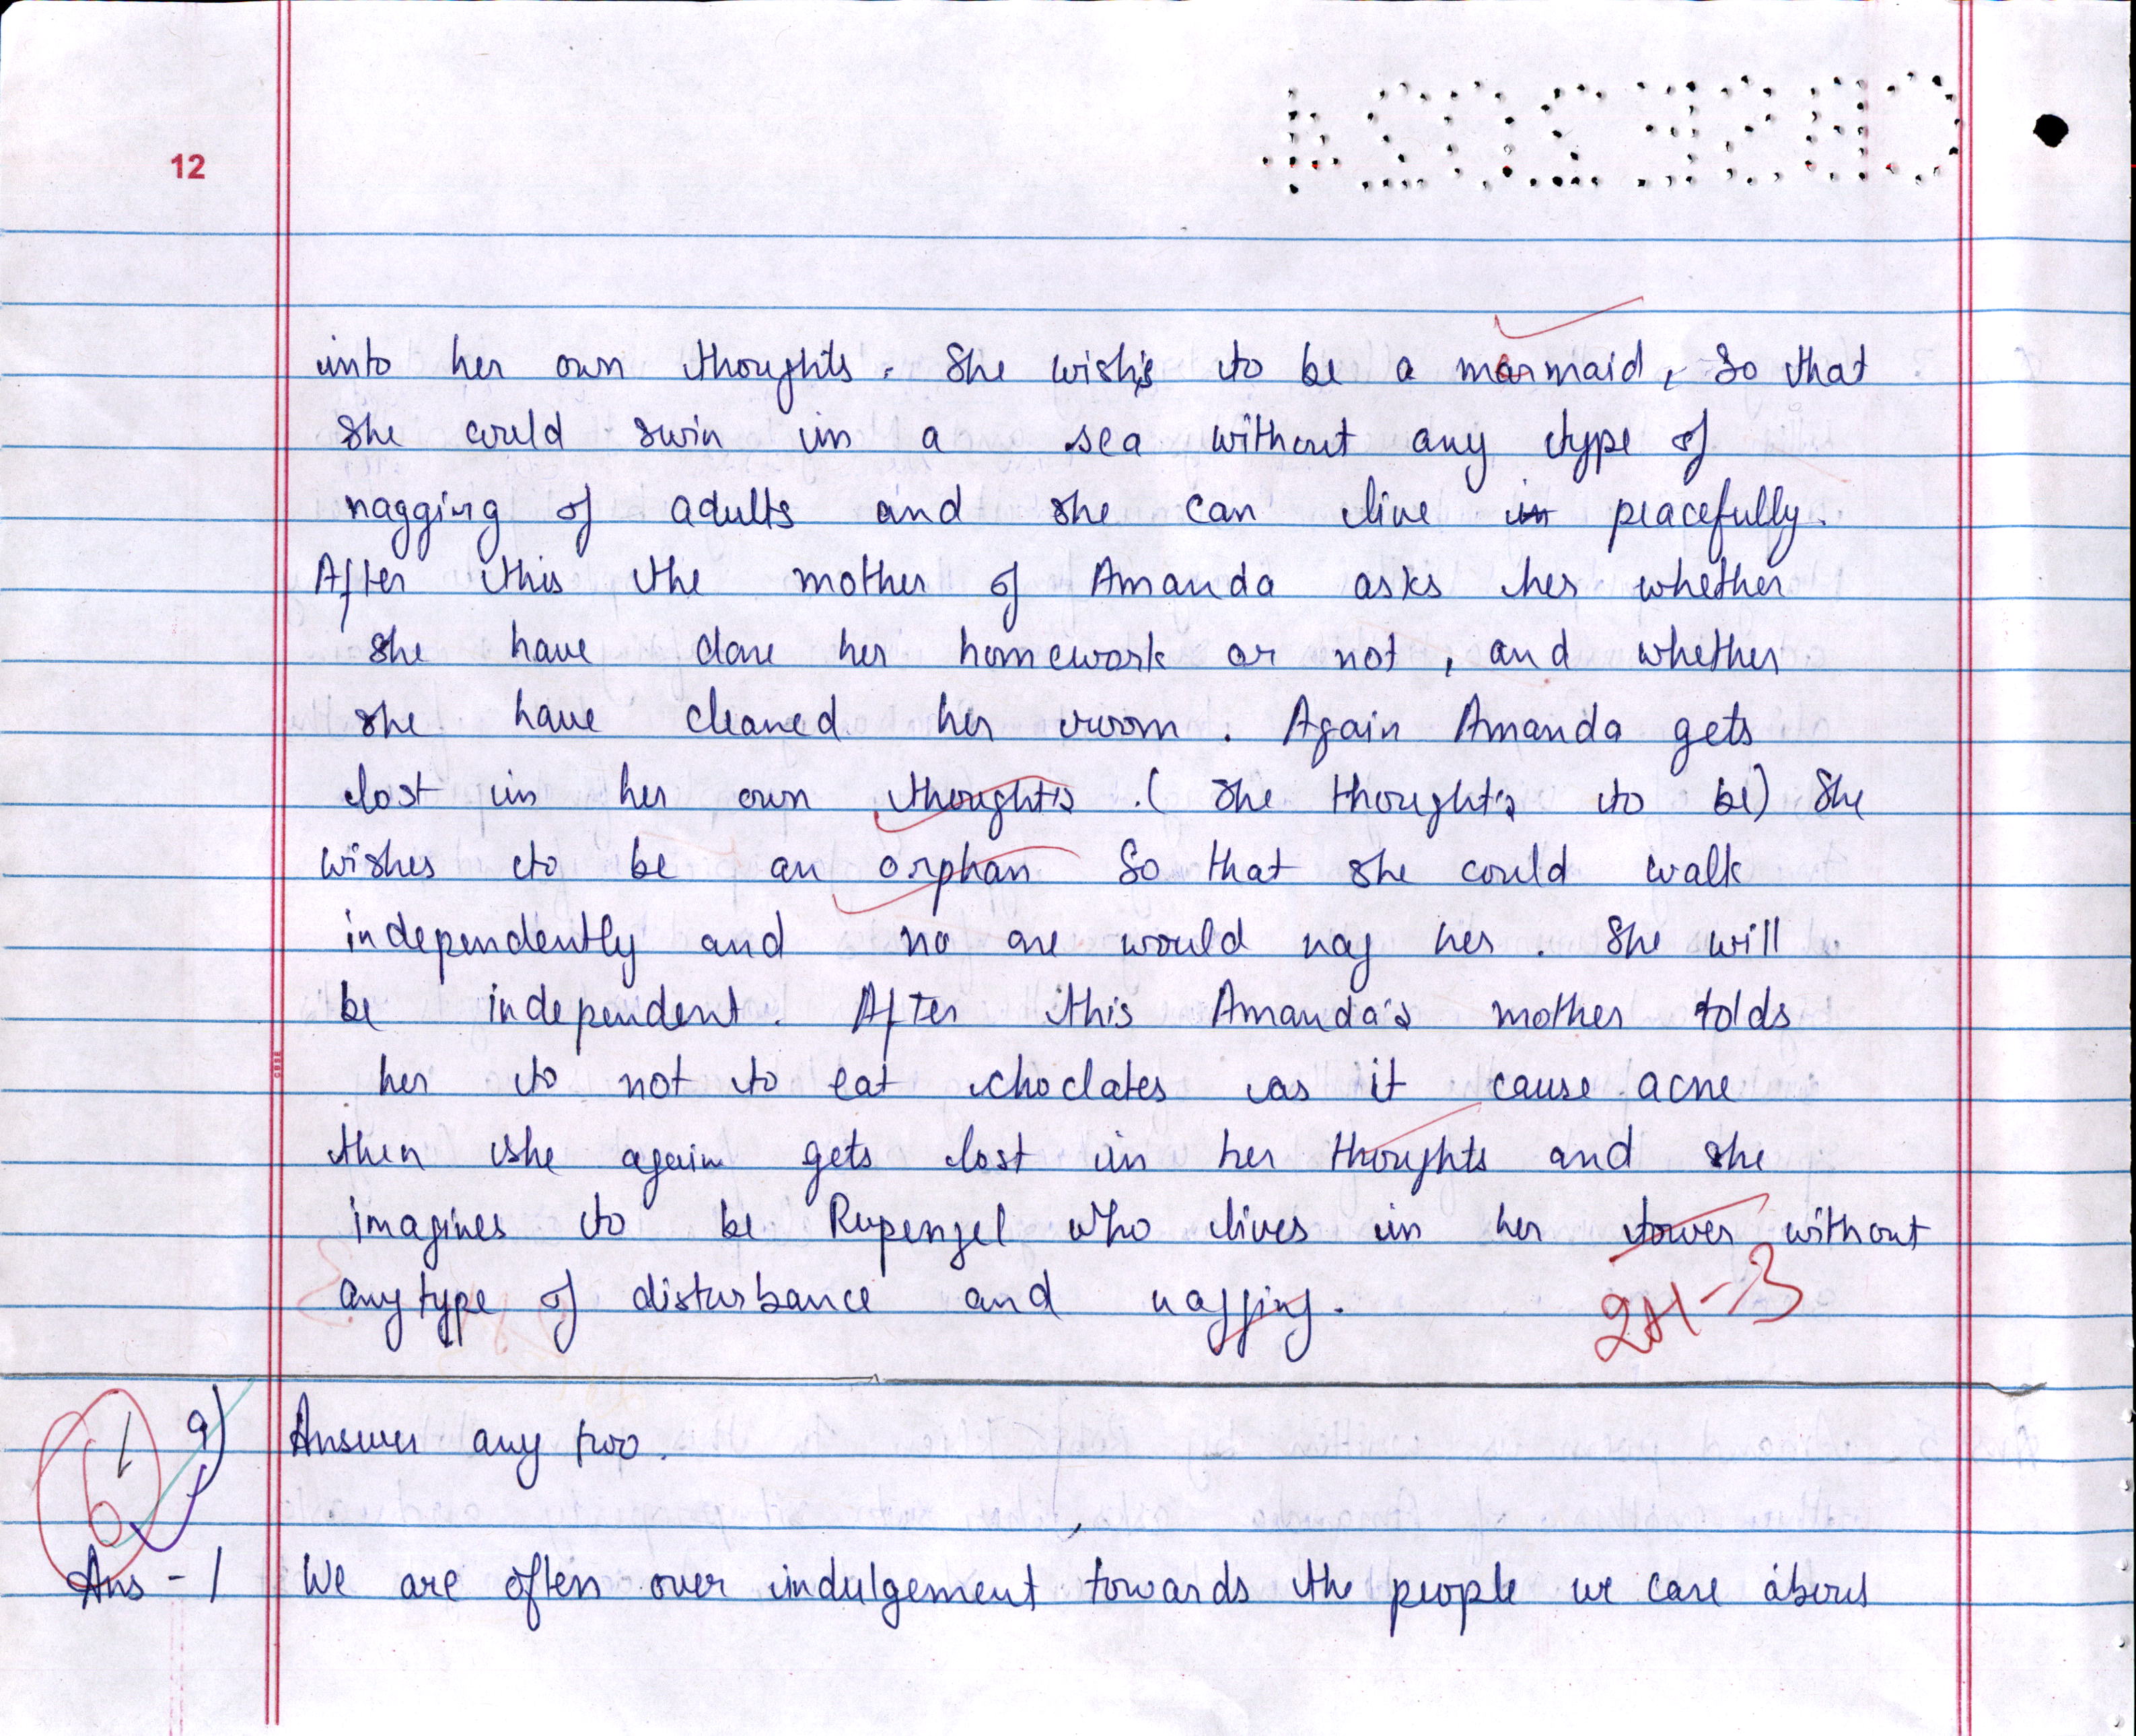 12
CBSE 2024
into her own thoughts. She wish's to be a marmaid, so that
she could swin in a sea without any type of
nagging of adults and she can live in peacefully.
After this the mother of Amanda asks her whether
she have done her homework or not, and whether
she have cleaned her room. Again Amanda gets
lost in her own thought's. (She thought's to be) She
wishes to be an orphan So that she could walk
independently and no one would nag her. She will
be independent. After this Amanda's mother tolds
her to not to eat choclates as it cause acne
then she again gets lost in her thoughts and she
imagines to be Rupenzel who lives in her tower without
any type of disturbance and nagging.
9) Answer any two.
Ans - 1 We are often over indulgement towards the people we care about